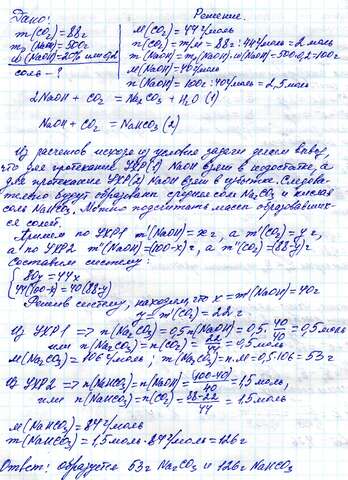 Дано: Решение.
m(CO₂)=88г M(CO₂)=44г/моль
mр(NaOH)=500г n(CO₂)=m/M=88г:44г/моль=2моль
ω(NaOH)=20% или 0,2 m(NaOH)=mр(NaOH)·ω(NaOH)=500·0,2=100г
соль-? M(NaOH)=40г/моль
n(NaOH)=100г:40г/моль=2,5моль
2NaOH+CO₂=Na₂CO₃+H₂O (1)
NaOH+CO₂=NaHCO₃ (2)
Из расчетов исходя из условия задачи делаем вывод,
что для протекания УХР(1) NaOH взят в недостатке, а
для протекания УХР(2) NaOH взят в избытке. Следова-
тельно будут образованы средняя соль Na₂CO₃ и кислая
соль NaHCO₃. Можно подсчитать массы образовавших-
ся солей.
Примем по УХР1 m'(NaOH)=xг, а m'(CO₂)=yг,
а по УХР2 m"(NaOH)=(100-x)г, а m"(CO₂)=(88-y)г
Составим систему:
{80y=44x
44(100-x)=40(88-y)
Решив систему, находим, что x=m'(NaOH)=40г
y=m'(CO₂)=22г
Из УХР1 => n(Na₂CO₃)=0,5n(NaOH)=0,5·40/40=0,5моль
или n(Na₂CO₃)=n(CO₂)=22/44=0,5моль
M(Na₂CO₃)=106г/моль; m(Na₂CO₃)=n·M=0,5·106=53г
Из УХР2 => n(NaHCO₃)=n(NaOH)=(100-40)/40=1,5моль,
или n(NaHCO₃)=n(CO₂)=88-22/44=1,5моль
M(NaHCO₃)=84г/моль
m(NaHCO₃)=1,5моль·84г/моль=126г
Ответ: образуется 53г Na₂CO₃ и 126г NaHCO₃